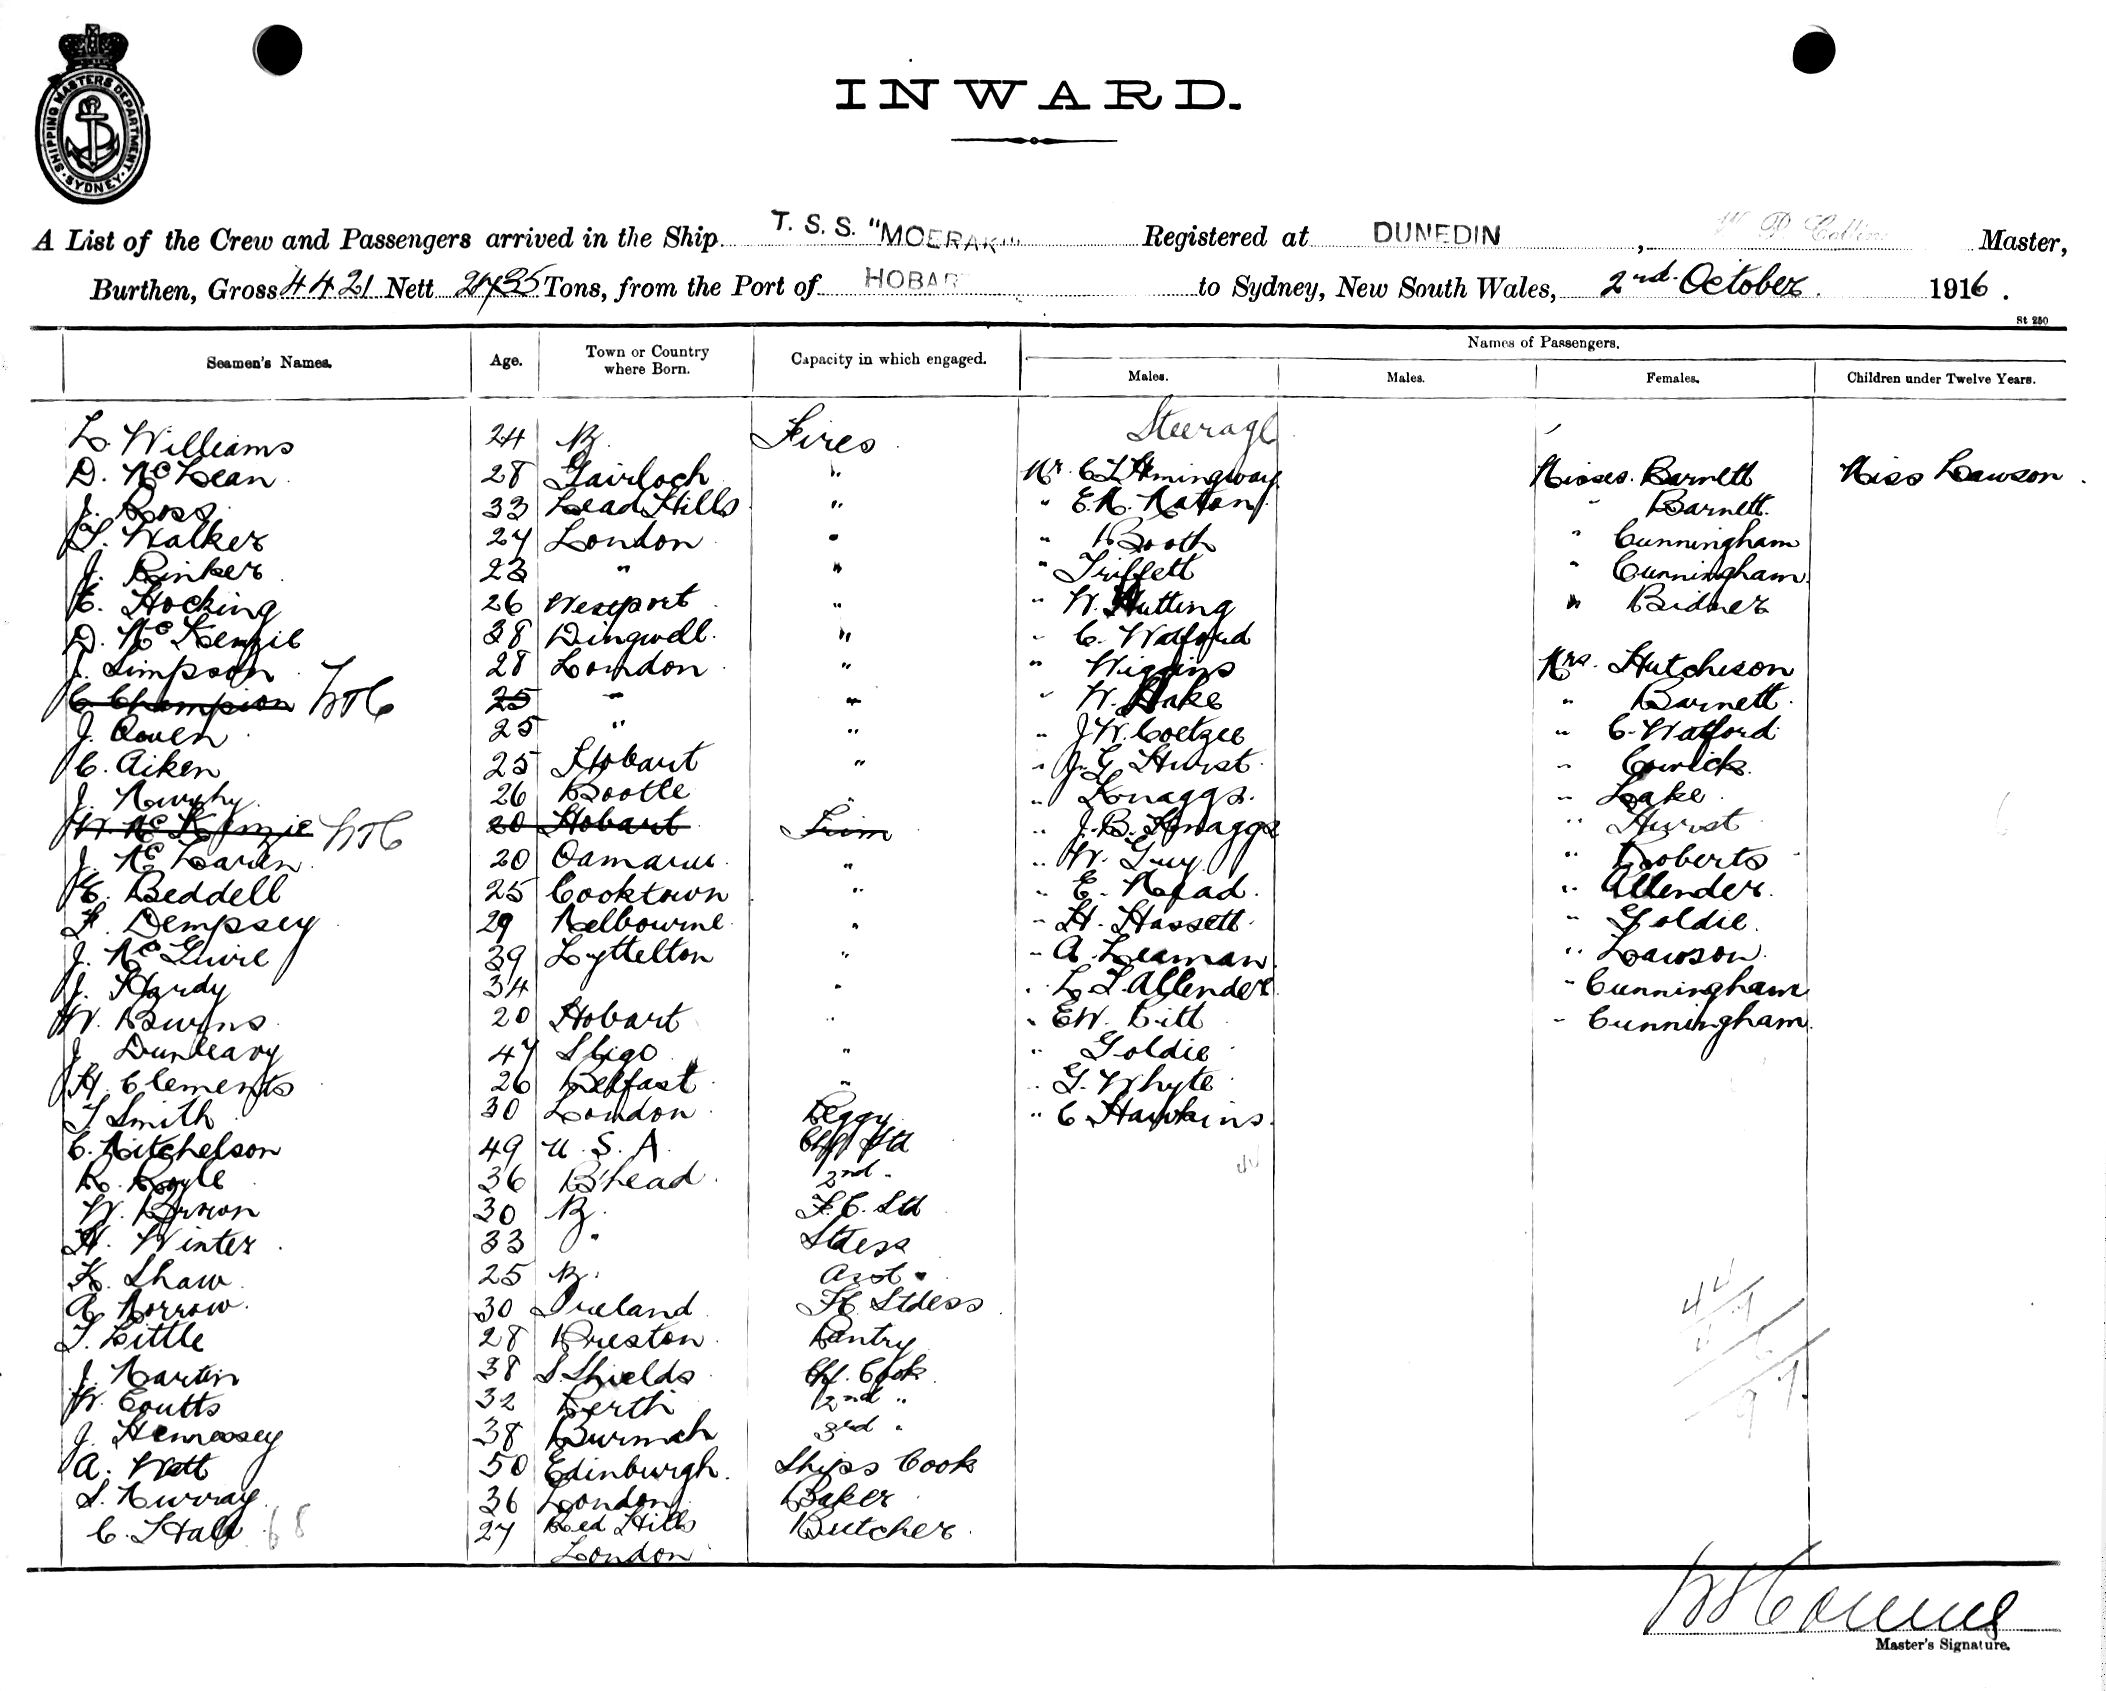 SHIPPING MASTERS DEPARTMENT · SYDNEY ·
INWARD.
A List of the Crew and Passengers arrived in the Ship T. S. S. "MOERAKI" Registered at DUNEDIN, W. D. Collins Master,
Burthen, Gross 4421 Nett 2435 Tons, from the Port of HOBART to Sydney, New South Wales, 2nd October 1916.
St 250
Seamen's Names. Age. Town or Country where Born. Capacity in which engaged. Names of Passengers.
Males. Males. Females. Children under Twelve Years.
L. Williams 24 Fires Steerage
D. McLean 28 Gairloch " Mr. C L Hemingway Misses Barnett Miss Lawson
J. Ross 33 Lead Hills " " E. M. " Barnett
T. Walker 27 London " " Booth " Cunningham
J. 23 " " " Triffett " Cunningham
E. Hocking 26 Westport " " W. Nutting "
D. McKenzie 38 Dingwell " " C. Watford
J. Simpson 28 London " " Wiggins Mrs. Hutchison
C Champion 25 " " " W. Lake " Barnett
J. Owen 25 " " " J W. Coetzee " C. Watford
C. Aiken 25 Hobart " " J. G. Hurst "
J. Murphy 26 Bootle " " Knaggs " Lake
W. McKenzie 20 Hobart Trim " J. B. Knaggs " Hurst
J. McLaren 20 Oamaru " " W. Guy " Roberts
E. Beddell 25 Cooktown " " E. Mead " Allender
F. Dempsey 29 Melbourne " " H. Hassett " Goldie
J. McGuire 39 Lyttelton " " A. Leaman " Lawson
J. Hardy 34 " " L L Allender " Cunningham
W. Burns 20 Hobart " " E W. Pitt " Cunningham
J. Dunleavy 47 Sligo " " Goldie
H. Clements 26 Belfast " " G. Whyte
T Smith 30 London Peggy " C Hawkins
C. Mitchelson 49 U. S. A. Chf Std
R. Royle 36 B'head 2nd "
W. Brown 30 F. C. Std
H. Winter 33 " Stdess
K. Shaw 25 Asst "
A Morrow 30 Ireland Stdess
T. Little 28 Preston Pantry
J. Martin 38 S. Shields Chf. Cook
W. Coutts 32 Perth 2nd "
J. Hennessey 38 Burmah 3rd "
A. Watt 50 Edinburgh Ships Cook
S. Murray 36 London Baker
C. Hall 68 27 Red Hills Butcher
London
Master's Signature.